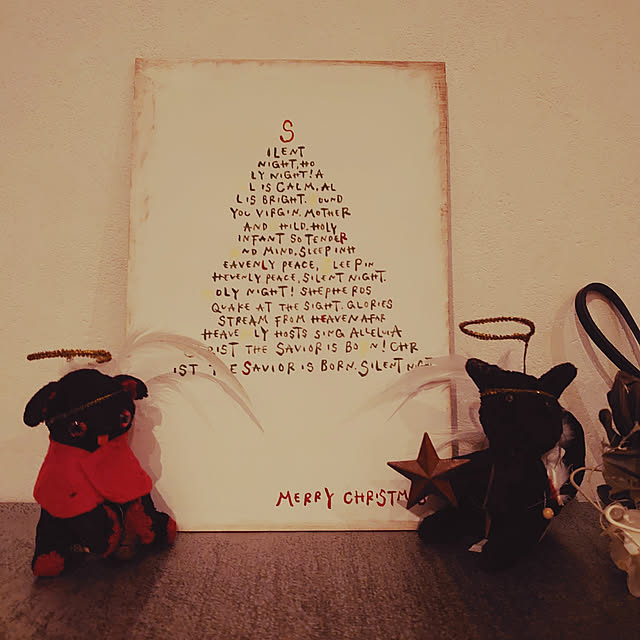 S
ILENT
NIGHT, HO
LY NIGHT! A
L IS CALM, AL
L IS BRIGHT. OUND
YOU VIRGIN. MOTHER
AND HILD. HOLY
INFANT SO TENDER
ND MIND, SLEEP INH
EAVENLY PEACE, LEEP IN
HEVENLY PEACE, SILENT NIGHT.
OLY NIGHT! SHEPHERDS
QUAKE AT THE SIGHT. GLORIES
STREAM FROM HEAVEN AFAR
HEAVE LY HOSTS SING ALLELUIA
RIST THE SAVIOR IS BO N! CHR
IST THE SAVIOR IS BORN. SILENT
MERRY CHRISTM